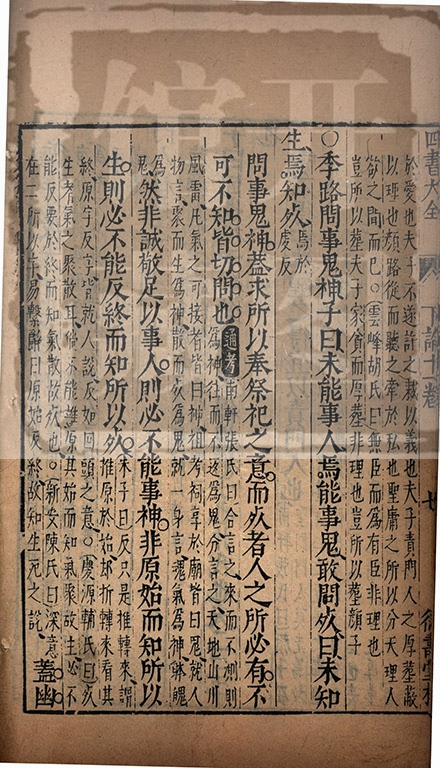 四書大全 下論十一卷 七
於愛也夫子不遂許之裁以義也夫子責門人之厚葬蔽
以理也顔路從而聽之牽於私也聖庸之所以分天理人
欲之間而巳○雲峰胡氏曰無臣而爲有臣非理也
豈所以葬夫子家貧而厚葬非理也豈所以葬顔子
○季路問事鬼神子曰未能事人焉能事鬼敢問死曰未知
生焉知死 焉於虔反
問事鬼神葢求所以奉祭祀之意而死者人之所必有不
可不知皆切問也 通考 南軒張氏曰合言之來而不測則
爲神往而不返爲鬼分言之天地山川
風雷凡氣之可接者皆曰神祖考祠享於廟皆曰鬼就人
物言聚而生爲神散而死爲鬼就一身言魂氣爲神體魄
爲鬼 然非誠敬足以事人則必不能事神非原始而知所以
生則必不能反終而知所以死 朱子曰反只是推轉來謂
推原於始郤折轉來看其
終原字反字皆就人說反如回頭之意○慶源輔氏曰死
生者氣之聚散耳惟不能推原其始而知氣聚故生必不
能反要於終而知氣散故死也○新安陳氏曰深意
在二所以字易繫辭曰原始反終故知生死之說 蓋幽